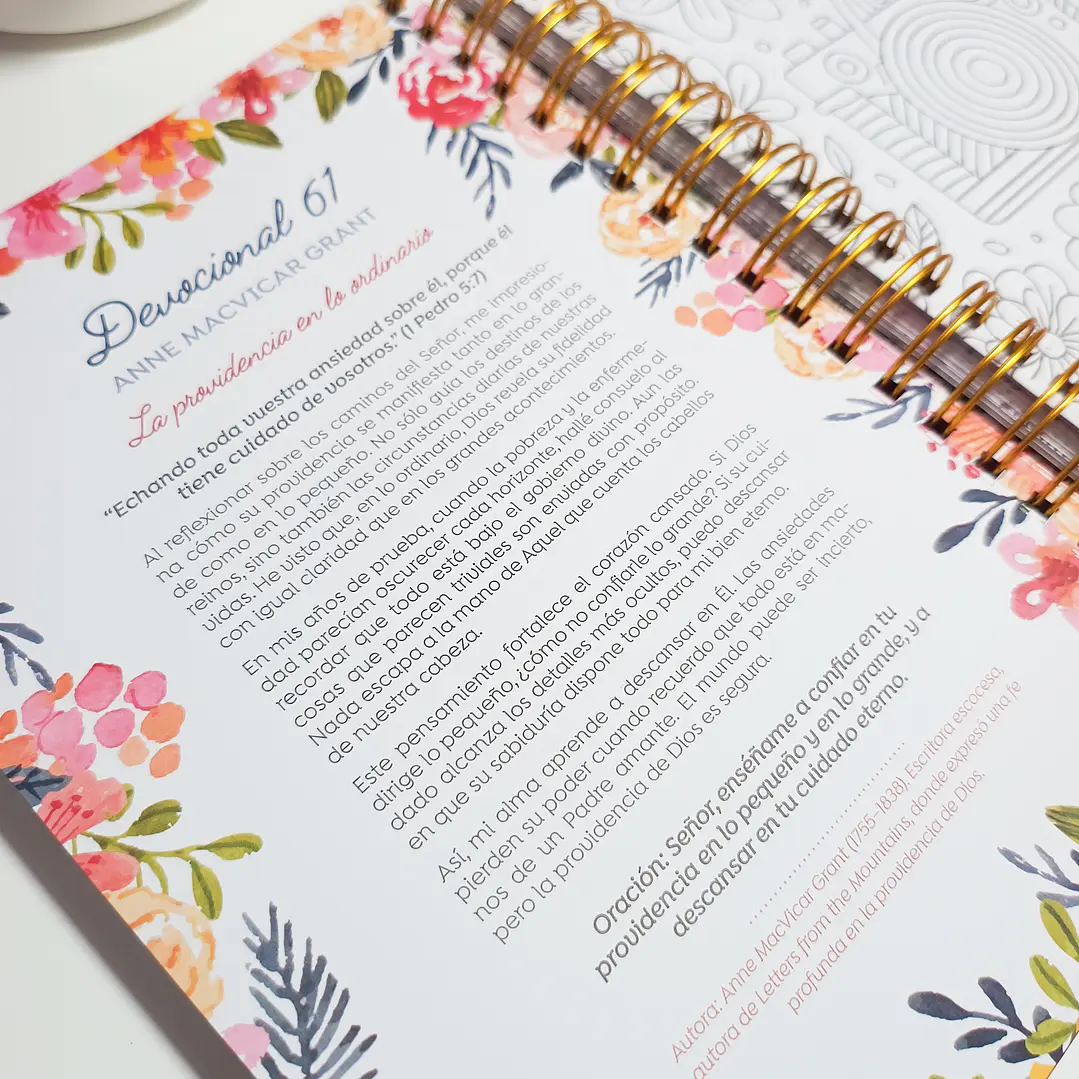 Devocional 61
ANNE MACVICAR GRANT
La providencia en lo ordinario
“Echando toda vuestra ansiedad sobre él, porque él
tiene cuidado de vosotros.” (1 Pedro 5:7)
Al reflexionar sobre los caminos del Señor, me impresio-
na cómo su providencia se manifiesta tanto en lo gran-
de como en lo pequeño. No sólo guía los destinos de los
reinos, sino también las circunstancias diarias de nuestras
vidas. He visto que, en lo ordinario, Dios revela su fidelidad
con igual claridad que en los grandes acontecimientos.
En mis años de prueba, cuando la pobreza y la enferme-
dad parecían oscurecer cada horizonte, hallé consuelo al
recordar que todo está bajo el gobierno divino. Aun las
cosas que parecen triviales son enviadas con propósito.
Nada escapa a la mano de Aquel que cuenta los cabellos
de nuestra cabeza.
Este pensamiento fortalece el corazón cansado. Si Dios
dirige lo pequeño, ¿cómo no confiarle lo grande? Si su cui-
dado alcanza los detalles más ocultos, puedo descansar
en que su sabiduría dispone todo para mi bien eterno.
Así, mi alma aprende a descansar en Él. Las ansiedades
pierden su poder cuando recuerdo que todo está en ma-
nos de un Padre amante. El mundo puede ser incierto,
pero la providencia de Dios es segura.
Oración: Señor, enséñame a confiar en tu
providencia en lo pequeño y en lo grande, y a
descansar en tu cuidado eterno.
Autora: Anne MacVicar Grant (1755-1838). Escritora escocesa,
autora de Letters from the Mountains, donde expresó una fe
profunda en la providencia de Dios.